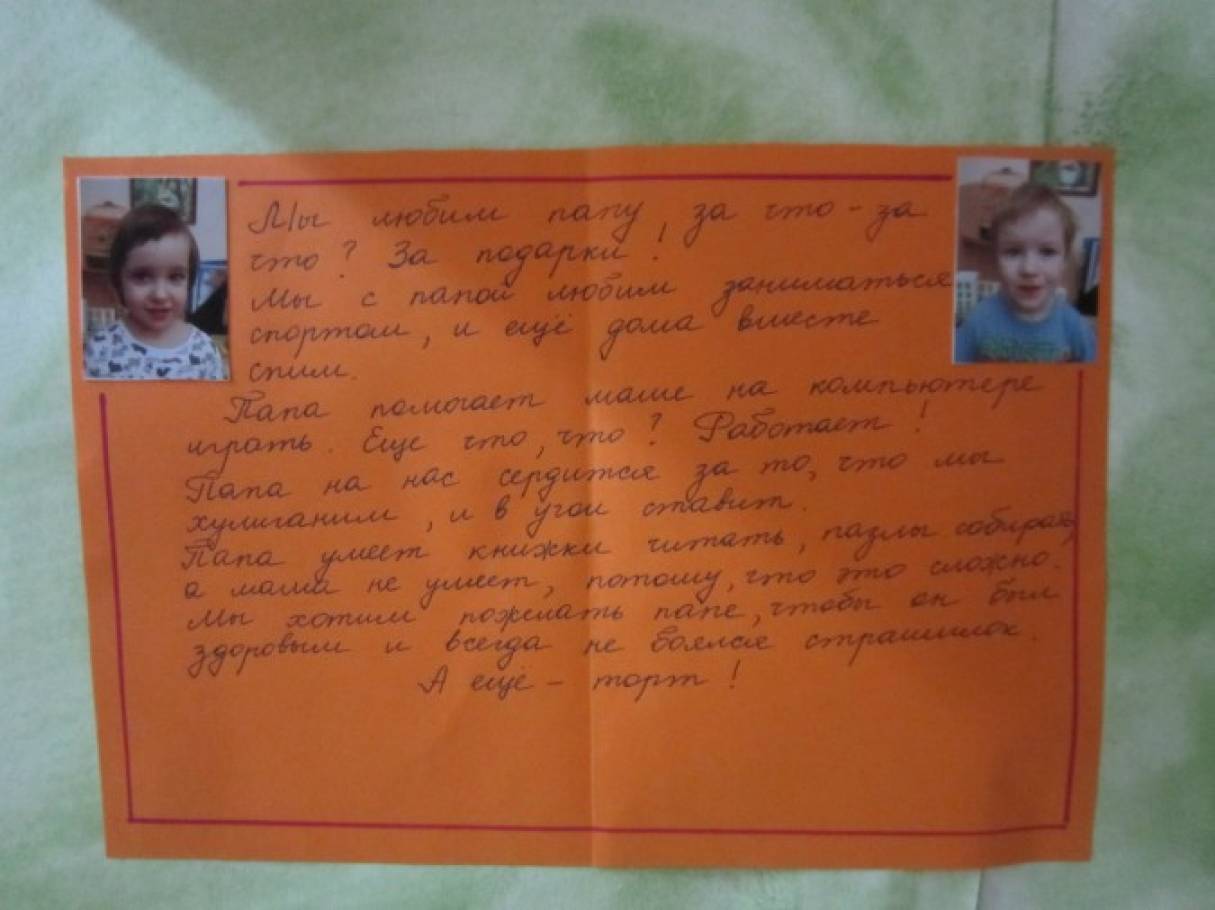 Мы любим папу, за что-за
что? За подарки!
Мы с папой любим заниматься
спортом, и ещё дома вместе
спим.
Папа помогает маме на компьютере
играть. Еще что, что? Работает!
Папа на нас сердится за то, что мы
хулиганим, и в угол ставит.
Папа умеет книжки читать, пазлы собирать,
а мама не умеет, потому, что это сложно.
Мы хотим пожелать папе, чтобы он был
здоровым и всегда не боялся страшилок.
А ещё - торт!